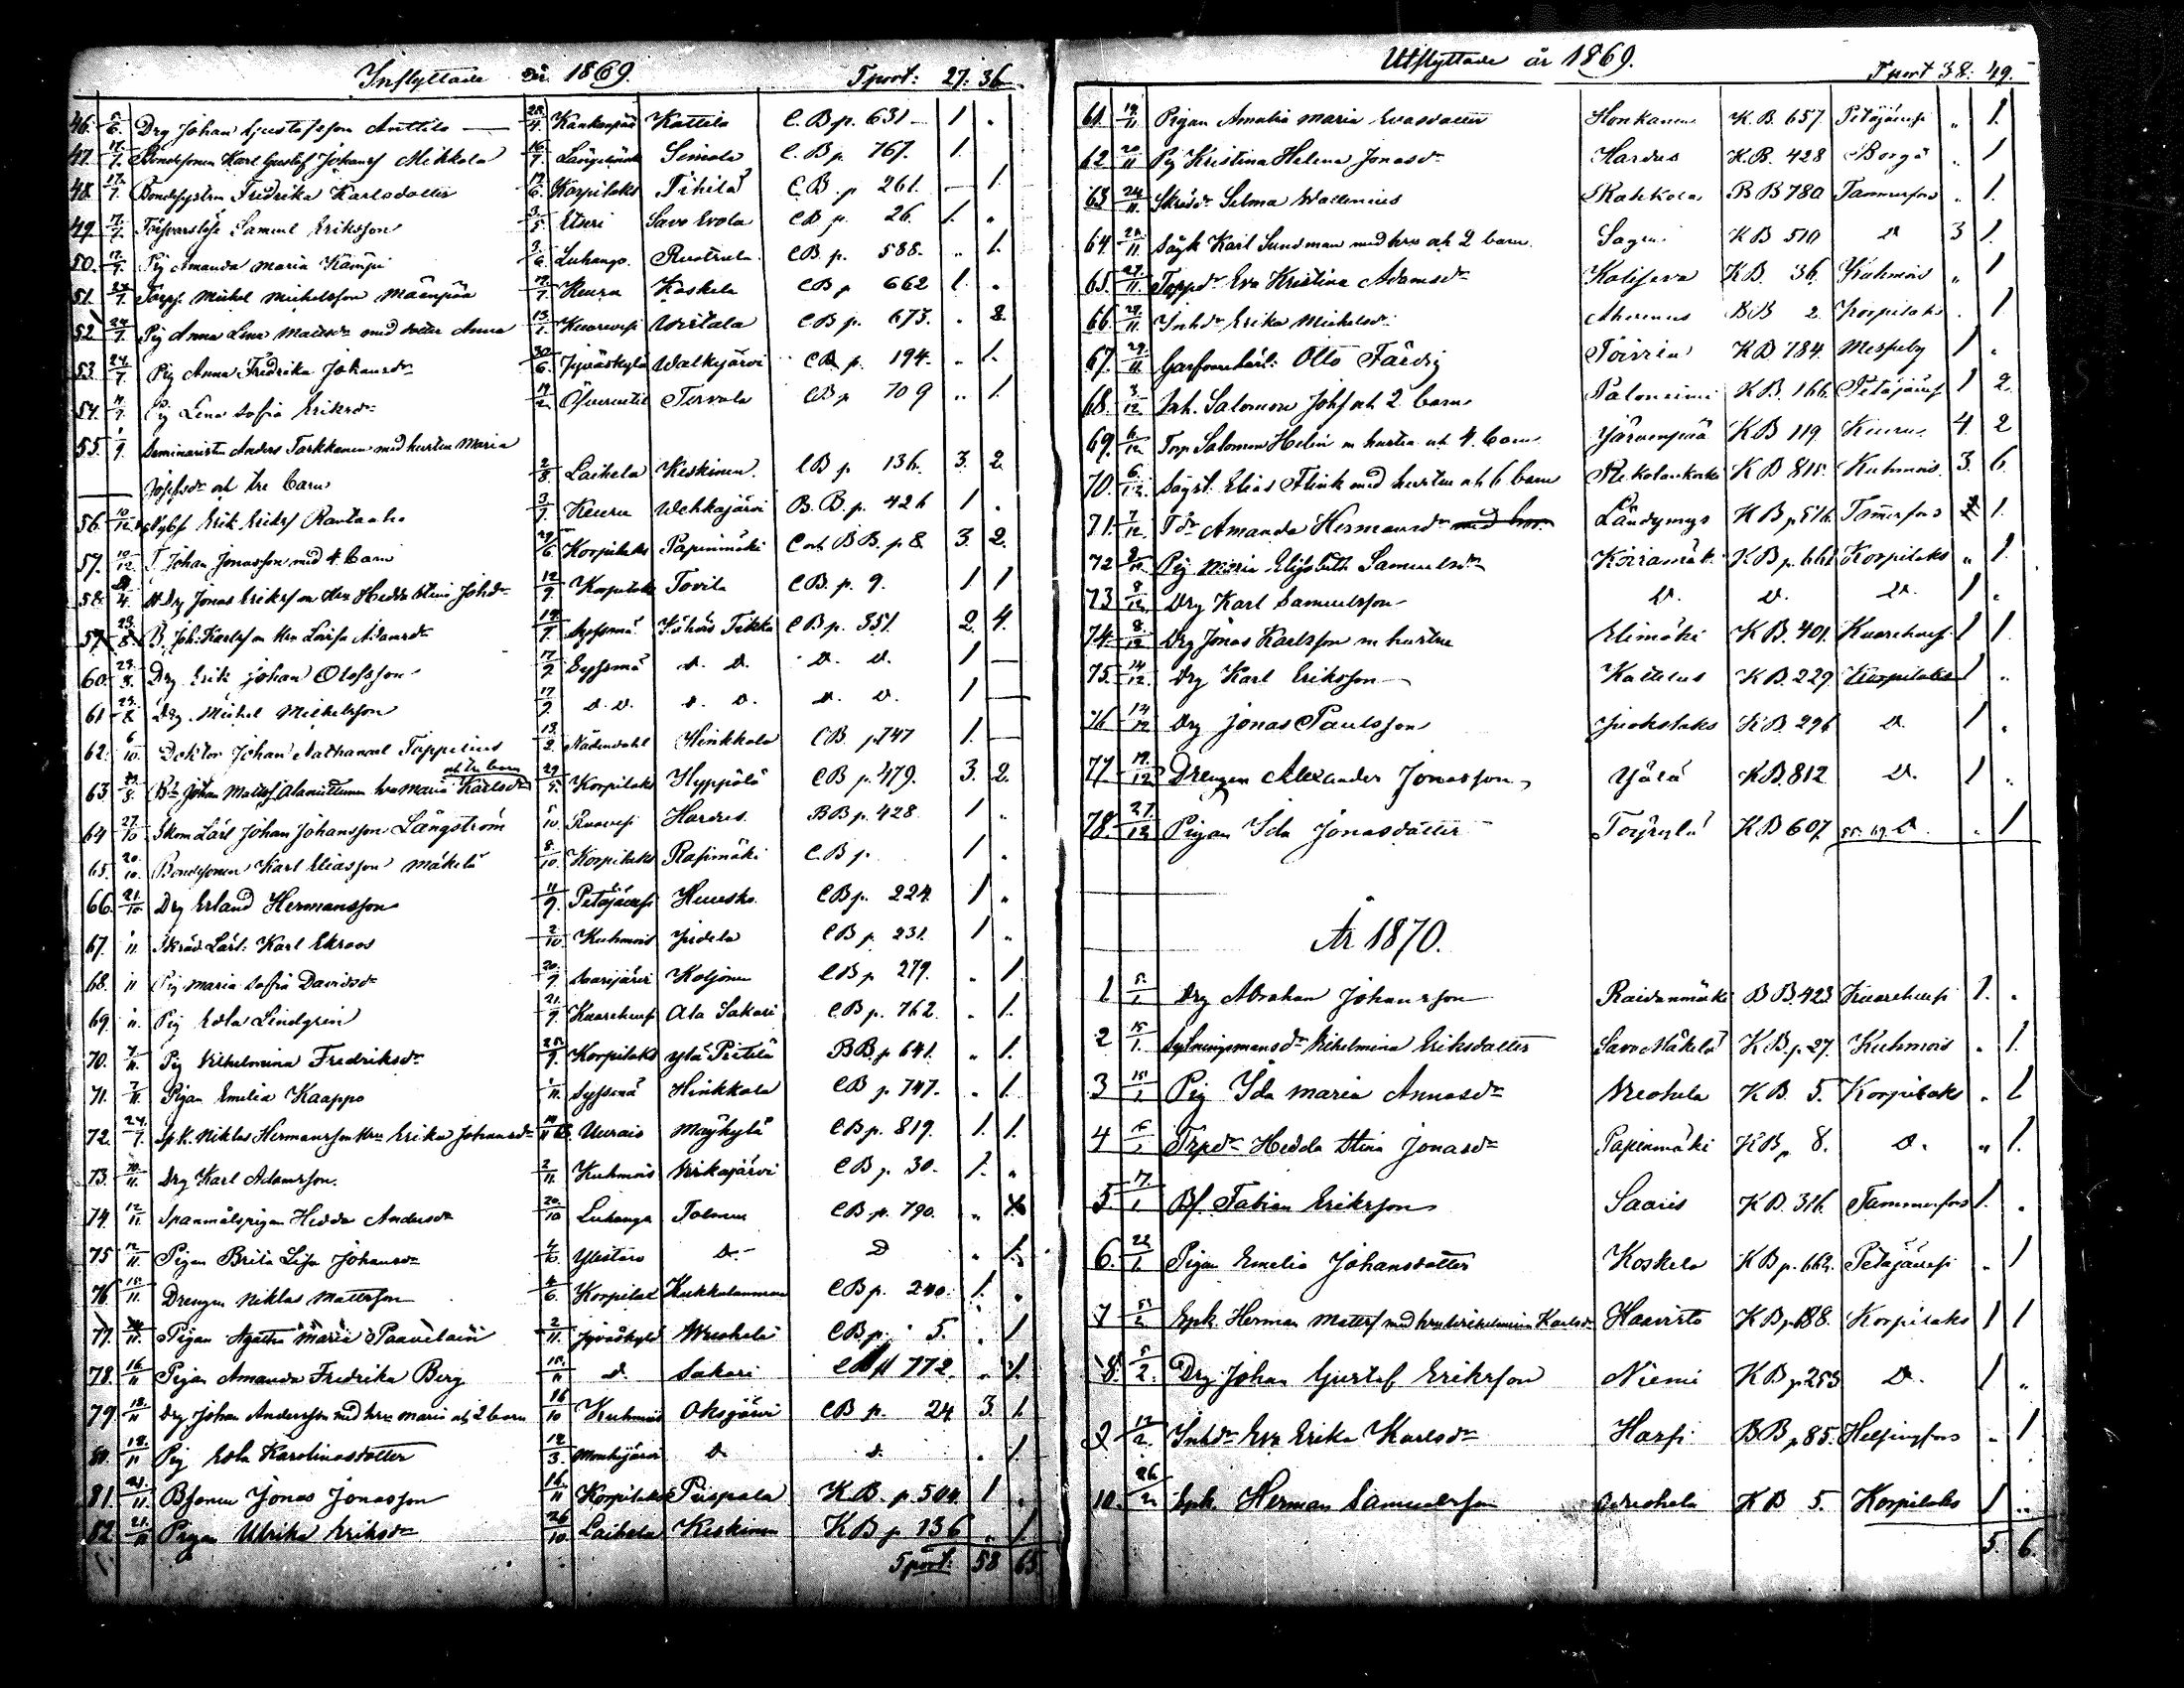 Inflyttade år 1869. Tport: 27. 36.
46. 5/6. Drg Johan Gustafsson Anttila 28/4. Kankanpää Kattila C.B p. 631 1 "
47. 17/7. Bondesonen Karl Gustaf Johansf Mikkola 16/7. Längelmäki Simola C.B p. 767. 1.
48. 17/7. Fredrika Karlsdotter 17/6. Korpilaks Tihilä C.B. p 261. — 1.
49. 17/7. Samuel Eriksson 3/5. Etseri Savo Evola CB p. 26. 1. "
50. 17/7. Pig Amanda Maria Kämpi 3/6. Luhango. CB. p. 588. " 1.
51. 24/7. Michel Michelsson Mäenpää 17/7. Keuru Koskela CB p 662 1. "
52 24/7. Pig Anna Lena Mattsdr med dotter Anna 13/1. Wirtala CB p. 673. . 2.
53. 24/7. Pig Anna Fredrika Johansdr 30/6. Jyväskylä Walkejärvi CB p. 194. " 1.
54. Pig Lena Sofia Eriksdr 19/2. Tervola CB p 709 " 1.
55. 1/9. Seminaristen Anders Tarkkanen med hustru Maria
Josefsdr och tre barn 2/8. Laihela Keskinen. CB p 136. 3. 2.
56. 10/12. Erik Eriksf Rautaaho 3/7. Keuru Wehkajärvi B.B. p. 426 1 .
57. 10/12. T. Johan Jonasson med 4 barn 29/6. Korpilaks Papinmäki C och BB. p 8. 3. 2.
58. Drg Jonas Eriksson Hru Hedda Stina Johdr 12/9. Korpilaks Tovila CB. p. 9. 1 1
59. 23/8. B. Joh. Karlsson Hru Lovisa Adamsdr 17/7. Sysmä Tikka CB p. 351. 2. 4.
60. 23/8. Drg Erik Johan Olofsson 17/7. Sysmä D. D. D. D. 1 —
61 23/8. Drg. Michel Michelsson 17/7. D. D. D. D. D. D. 1 —
62. 6/10. Doktor Johan Nathanael Toppelius 13/2. Nådendahl Hinkkala CB p. 747 1. —
63. Johan Mattsf hru Maria Karlsdr och tre barn 29/5. Korpilaks Hyppölä CB p. 479. 3. 2.
64 27/10 Skom Lärl Johan Johansson Långström 5/10. Ruovesi Hardus. BB p. 428 1 "
65. 20/10. Bondesonen Karl Eliasson Mäkelä 8/10. Korpilaks Rasimäki C.B p. 1 .
66. 21/10. Drg Erland Hermansson 11/9. Petäjävesi CB p. 224. 1 "
67. 1/11. Skräd. Lärl: Karl Ekroos 2/10. Kuhmois CB p. 231. 1 "
68. 11 Pig Maria Sofia Davidsdr 20/9. Saarijärvi Koljonen CB p. 279. " 1.
69. 11. Pig Edla Lindgren 21/9. Ala Sakari CB p. 762. . 1.
70. 7/11. Pig Wilhelmina Fredriksdr 25/9. Korpilaks Ylä Peitilä BB p 641. " 1.
71. 7/11. Pigan Emelia Kaappo 1/11. Sysmä Hinkkala CB p 747. . 1.
72. 24/7. Spk. Niklas Hermansson hru Erika Johansdr Uurais CB p. 819. 1. 1.
73. 10/11. Drg Karl Adamsson. 2/11. Kuhmois Urikajärvi CB p. 30. 1. "
74. 12/11. Spanmålspigan Hedda Andersdr 20/10 Luhanga Tolmen CB p. 790. "
75 12/11. Pigan Brita Lisa Johansdr Ylistaro D. D " 1.
76. 15/11. Drengen Niklas Mattsson 4/6. Korpilax CB p. 240. 1. "
77. Pigan Agatha Maria Paavelain 2/11. Jyväskylä Wuohela CB p. 5. . 1.
78. 16/11 Pigan Amanda Fredrika Berg 15/11 D. Sakari CB p 772. " 1.
79. 18/11 Drg Johan Andersson med hru Maria och 2 barn 16/10 Kuhmois Oksjärvi CB p. 24 3. 1.
80. 18/11 Pig Edla Karolinasdotter 12/3. D. D. . 1.
81. 21/11 Bsonen Jonas Jonasson 16/11 Korpilaks Puspala K.B. p. 504. 1 .
82. 21/11 Pigan Ulrika Eriksdr 26/10 Laihela Keskinen KB p 136 " 1.
Tport: 58 65.
Utflyttade år 1869. Tport 38. 49.
61. 19/11. Pigan Amalia Maria Evasdotter Honkanen K.B. 657. Petäjävesi " 1.
62 20/11 Pig Kristina Helena Jonasdr Hardus K.B. 428 Borgå " 1
63 24/11. Skräddr Selma Wallenius Rahkola B B 780 Tammerfors . 1.
64. Karl Sundman med hru och 2 barn. K B 510 D 3 1.
65. 27/11. Torpdr Eva Kristina Adamsdr KB. 36. Kuhmois " 1
66. 28/11. Inhdr Erika Michelsdr Ahvenus BB 2. Korpilaks . 1.
67. 29/11. Garfvarelärl: Otto Färdig Toivila KB 784. 1 .
68. 3/12. Inh. Salomon Johsf och 2 barn Palonimi KB. 166. Petäjävesi 1 2.
69. 6/12. Torp Salomon Helin m hustru och 4. barn Järvenpää KB 119 Keuru 4. 2
70. 6/12. Elias Flink med hustru och 6 barn KB 815. Kuhmois 3. 6.
71. 7/12. Tdr Amanda Hermansdr Ländymys KB p. 516. Tammerfors 1.
72 8/12. Pig Maria Elisabeth Samuelsdr KB p. 661 Korpilaks " 1.
73 8/12. Drg Karl Samuelsson D. D. D. 1 .
74. 8/12 Drg Jonas Karlsson m hustru Elimäki KB. 401. 1 1
75. 14/12. Drg Karl Eriksson Kattelus KB. 229. Korpilaks 1 "
76 14/12 Drg Jonas Paulsson Juokslaks KB. 296 D. 1 "
77 19/12 Drengen Alexander Jonasson Ylälä KB. 812 D. 1 "
78. 27/12 Pigan Ida Jonasdotter KB 607. D. . 1
År 1870.
1 5/1 Drg Abraham Johansson Raidanmäki B B. 423 1. .
2 15/1. Wilhelmina Eriksdotter Savo Mäkelä KB. p. 27. Kuhmois . 1.
3 15/1 Pig Ida Maria Annasdr Wuohela KB. 5. Korpilaks . 1
4 Trpdr Hedda Stina Jonasdr Papinmäki KB p 8. D. " 1.
5. 17/1 Bf. Fabian Eriksson Saaris KB. 316. Tammerfors 1. .
6. 22/1. Pigan Emelia Johansdotter Koskela KB p. 662. Petäjävesi . 1
7 5/2 Spk. Herman Mattsf med hru Wilhelmina Karlsdr Haavisto KB p 188. Korpilaks 1 1
8. 5/2. Drg Johan Gustaf Eriksson Niemi KB p 253 D. 1 "
9 12/2. Inhdr Eva Erika Karlsdr Harsi BB p 85. Helsingfors " 1
10. 26/2 Spk. Herman Samuelsson Wuohela KB 5. Korpilaks 1 "
5. 6.